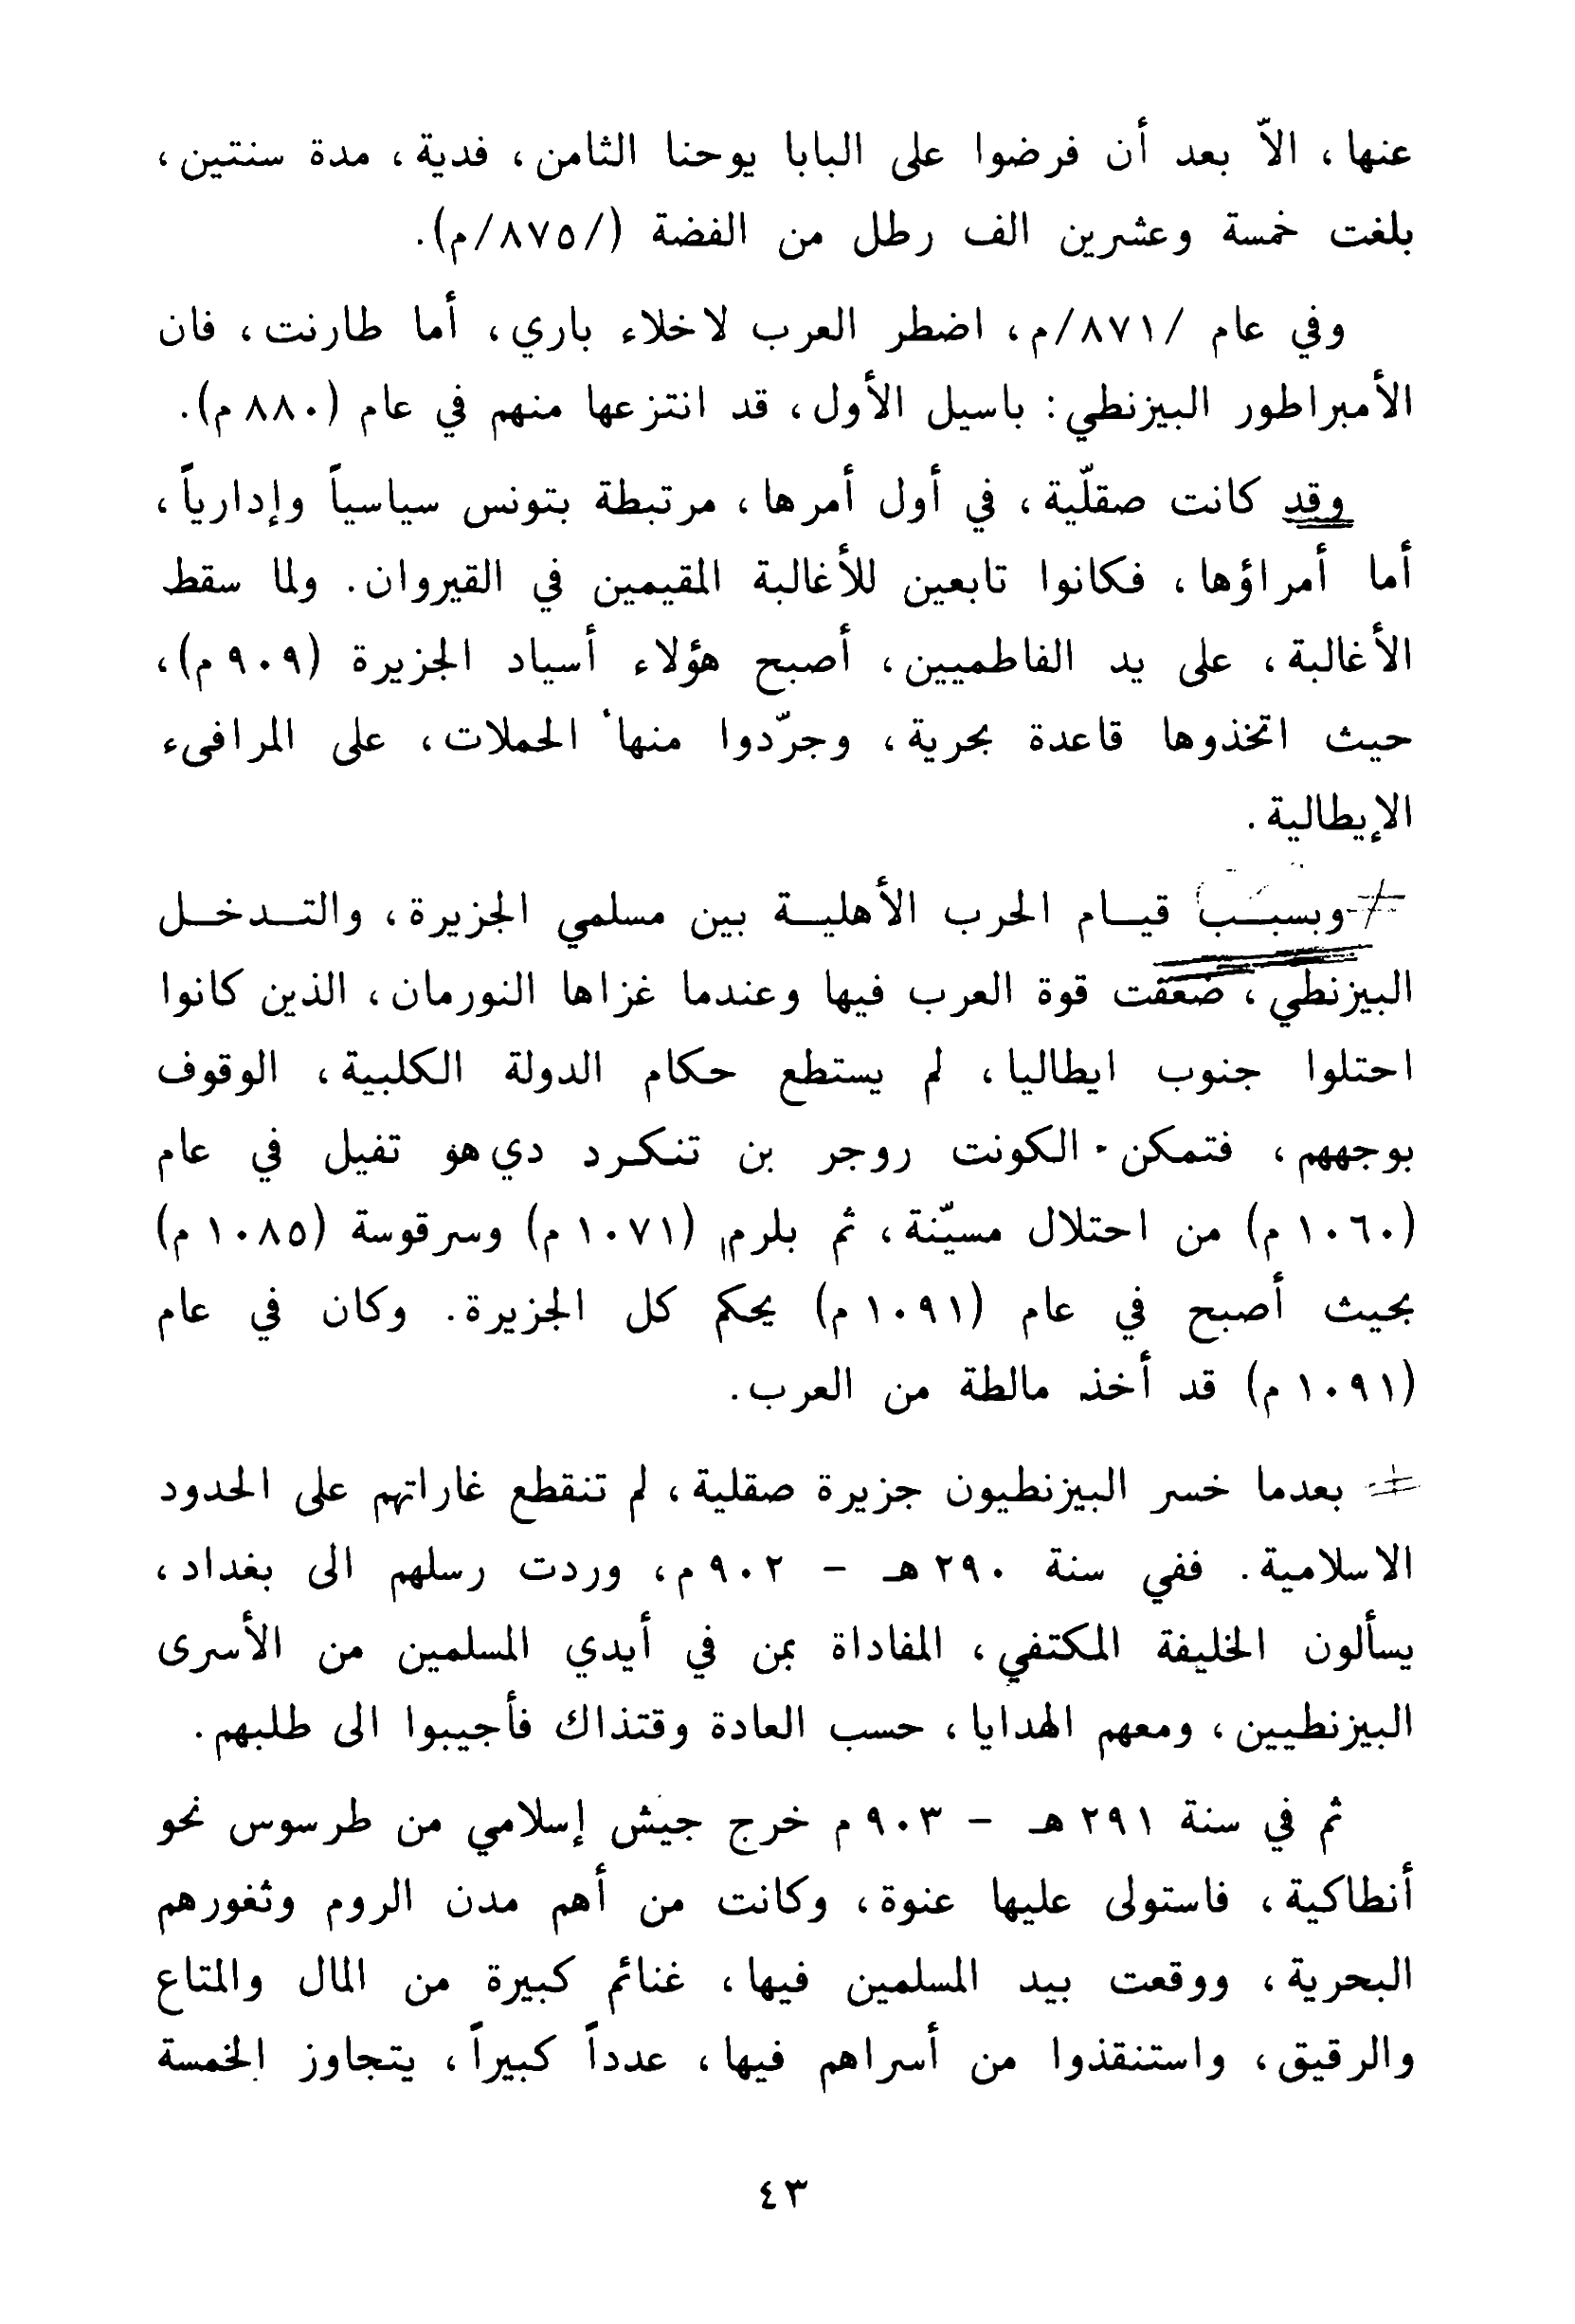 عنها، الاّ بعد أن فرضوا على البابا يوحنا الثامن، فدية، مدة سنتين،
بلغت خمسة وعشرين الف رطل من الفضة (/٨٧٥/م).
وفي عام /٨٧١/م، اضطر العرب لاخلاء باري، أما طارنت، فان
الأمبراطور البيزنطي: باسيل الأول، قد انتزعها منهم في عام (٨٨٠ م).
وقد كانت صقلّية، في أول أمرها، مرتبطة بتونس سياسياً وإدارياً،
أما أمراؤها، فكانوا تابعين للأغالبة المقيمين في القيروان. ولما سقط
الأغالبة، على يد الفاطميين، أصبح هؤلاء أسياد الجزيرة (٩٠٩ م)،
حيث اتخذوها قاعدة بحرية، وجرّدوا منها الحملات، على المرافىء
الإيطالية.
وبسبب قيام الحرب الأهلية بين مسلمي الجزيرة، والتدخل
البيزنطي، ضعفت قوة العرب فيها وعندما غزاها النورمان، الذين كانوا
احتلوا جنوب ايطاليا، لم يستطع حكام الدولة الكلبية، الوقوف
بوجههم، فتمكن الكونت روجر بن تنكرد دي هو تفيل في عام
(١٠٦٠ م) من احتلال مسيّنة، ثم بلرم (١٠٧١ م) وسرقوسة (١٠٨٥ م)
بحيث أصبح في عام (١٠٩١ م) يحكم كل الجزيرة. وكان في عام
(١٠٩١ م) قد أخذ مالطة من العرب.
بعدما خسر البيزنطيون جزيرة صقلية، لم تنقطع غاراتهم على الحدود
الاسلامية. ففي سنة ٢٩٠ هـ - ٩٠٢ م، وردت رسلهم الى بغداد،
يسألون الخليفة المكتفي، المفاداة بمن في أيدي المسلمين من الأسرى
البيزنطيين، ومعهم الهدايا، حسب العادة وقتذاك فأجيبوا الى طلبهم.
ثم في سنة ٢٩١ هـ - ٩٠٣ م خرج جيش إسلامي من طرسوس نحو
أنطاكية، فاستولى عليها عنوة، وكانت من أهم مدن الروم وثغورهم
البحرية، ووقعت بيد المسلمين فيها، غنائم كبيرة من المال والمتاع
والرقيق، واستنقذوا من أسراهم فيها، عدداً كبيراً، يتجاوز الخمسة
٤٣